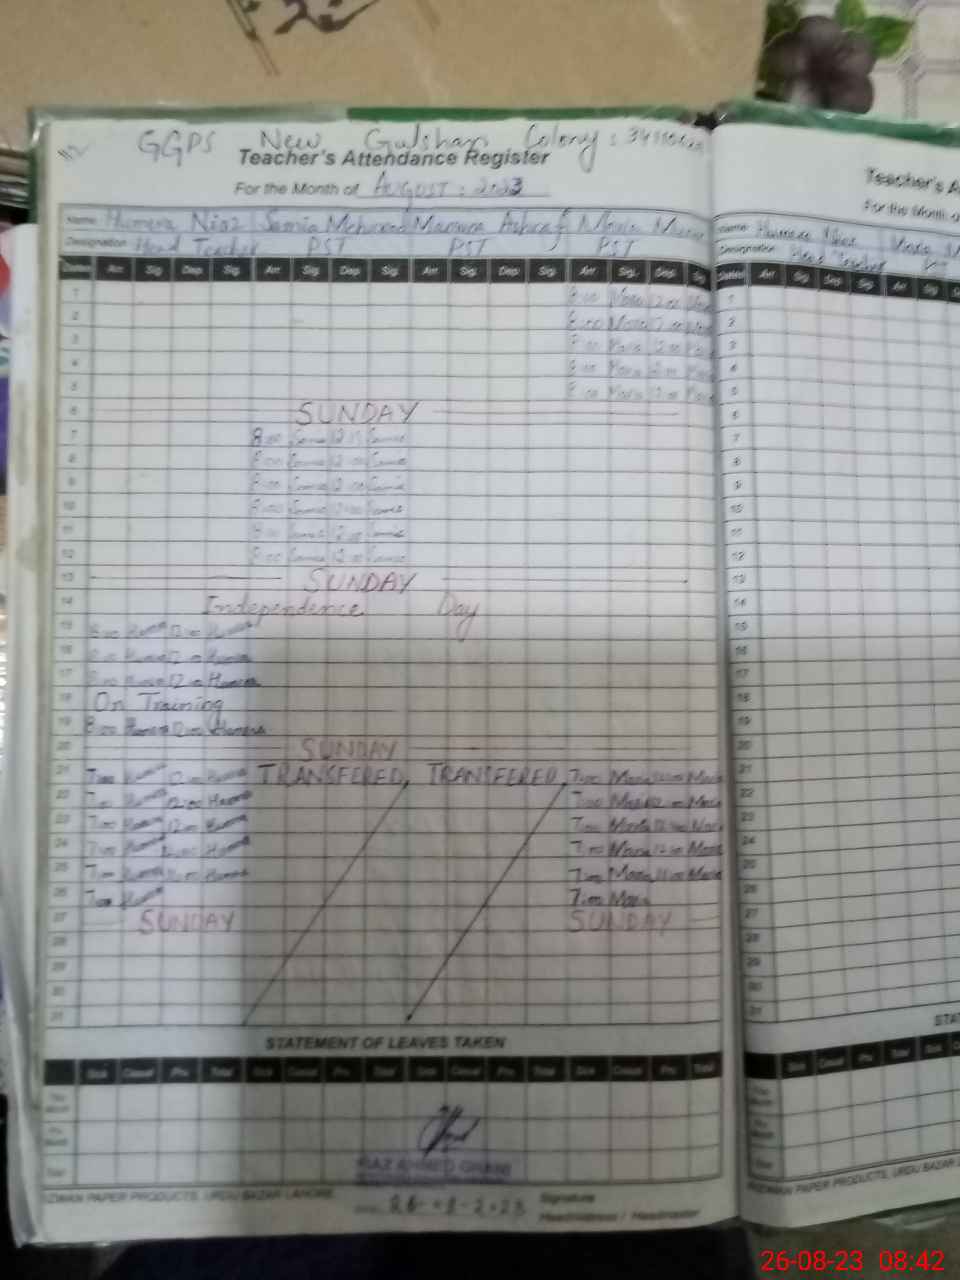 GGPS New Gulshan Colony :
Teacher's Attendance Register
For the Month of AUGUST : 2023
Name Humera Niaz Samia Mamuna Ashraf Maria
Designation Head Teacher PST PST PST
Dates Arr Sig Dep Sig. Arr Sig. Dep Sig. Arr Sig. Dep Sig. Arr Sig. Dep Sig
1 8:00 Maria 12:00 Maria
2 8:00 Maria 12:00 Maria
3 8:00 Maria 12:00 Maria
4 8:00 Maria 12:00 Maria
5 8:00 Maria 12:00 Maria
6 SUNDAY
7 8:00 Samia Samia
8 8:00 Samia 12:00 Samia
9 8:00 Samia 12:00 Samia
10 8:00 Samia 12:00 Samia
11 8:00 Samia 12:00 Samia
12 8:00 Samia 12:00 Samia
13 SUNDAY
14 Independence Day
15 8:00 Humera 12:00 Humera
16 8:00 Humera 12:00 Humera
17 8:00 Humera 12:00 Humera
18 On Training
19 8:00 Humera 12:00 Humera
20 SUNDAY
21 7:00 Humera 12:00 Humera TRANSFERED TRANSFERED 7:00 Maria Maria
22 7:00 Humera 12:00 Humera 7:00 Maria 12:00 Maria
23 7:00 Humera 12:00 Humera 7:00 Maria 12:00 Maria
24 7:00 Humera 12:00 Humera 7:00 Maria 12:00 Maria
25 7:00 Humera Humera 7:00 Maria Maria
26 7:00 Humera 7:00 Maria
27 SUNDAY SUNDAY
28
29
30
31
STATEMENT OF LEAVES TAKEN
Sick Casual Prv. Total Sick Casual Prv. Total Sick Casual Prv. Total Sick Casual Prv. Total
Total
RIAZ AHMED
RIZWAN PAPER PRODUCTS, URDU BAZAR LAHORE.
Signature
Headmistress / Headmaster
Teacher's
For the Month
Name Humera Niaz Maria
Designation Head Teacher
Dates Arr Sig. Dep Sig. Arr Sig
1
2
3
4
5
6
7
8
9
10
11
12
13
14
15
16
17
18
19
20
21
22
23
24
25
26
27
28
29
30
31
Sick Casual Prv. Total Sick Casual
Total
RIZWAN PAPER PRODUCTS, URDU BAZAR
26-08-23 08:42